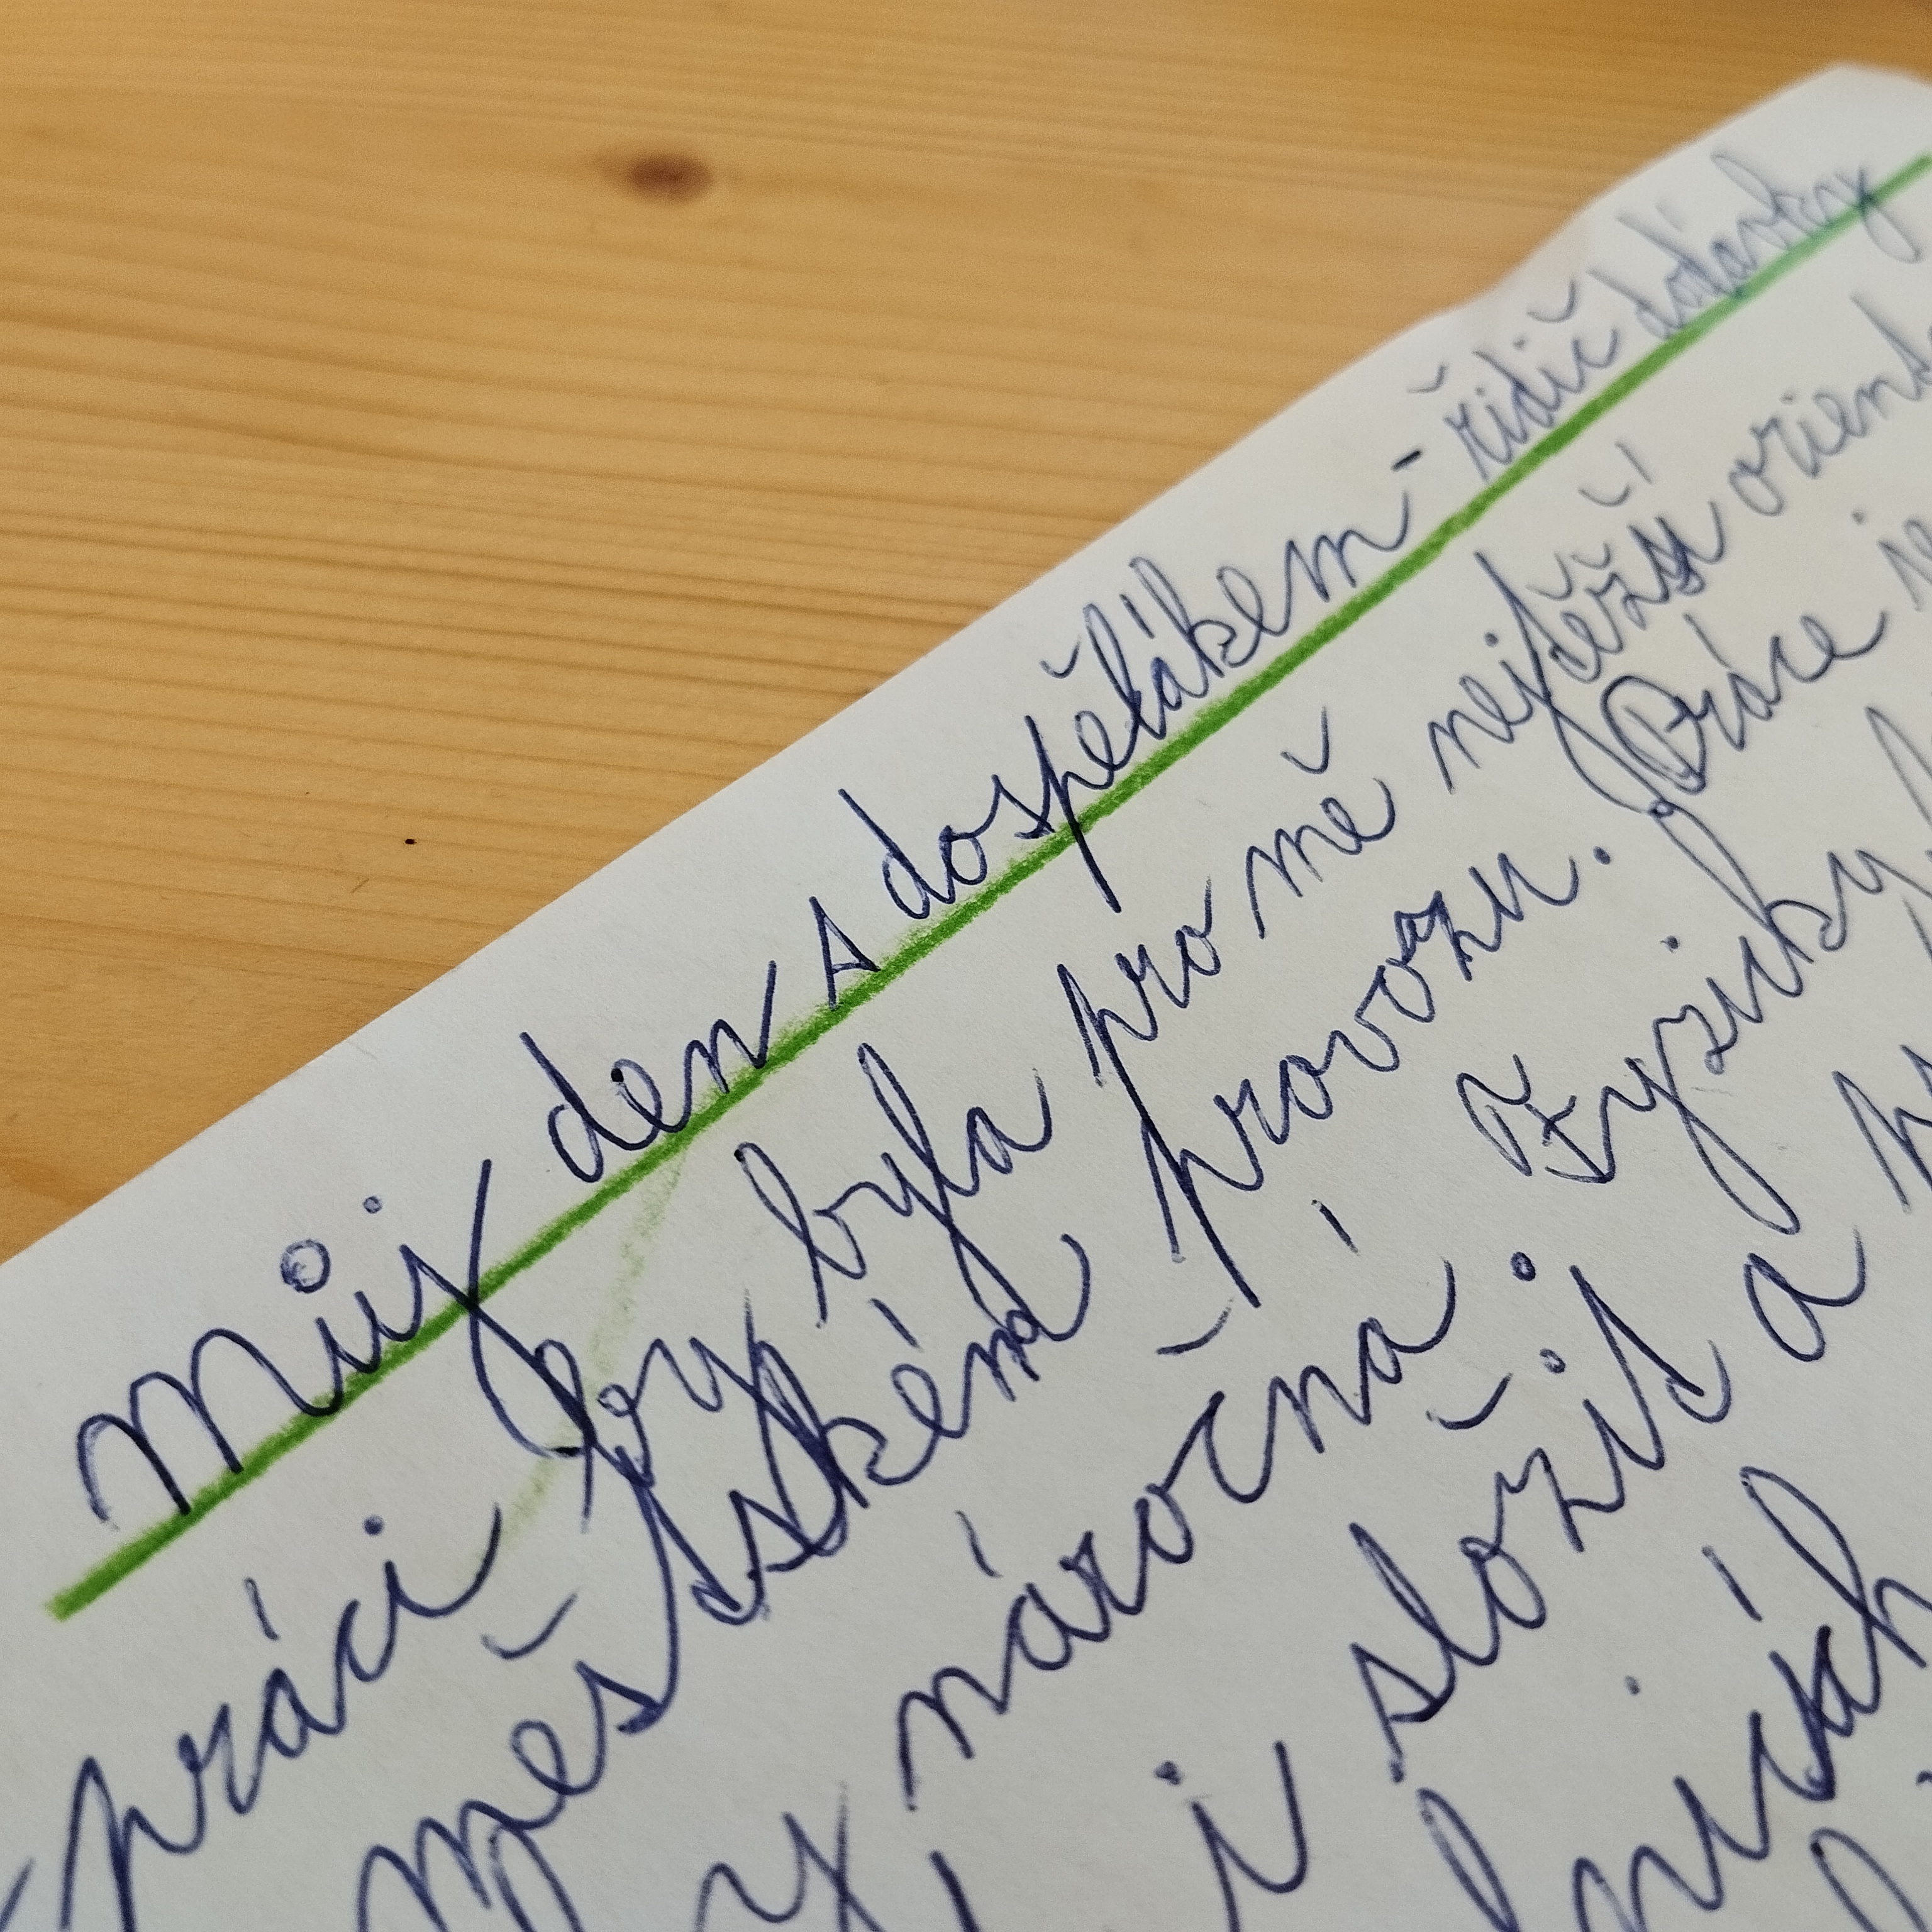 Můj den s dospělákem - řidič dodávky
práci by byla pro mě nejtěžší orient
městském provozu. Práce je
náročná z fyzicky
i složit a
nich